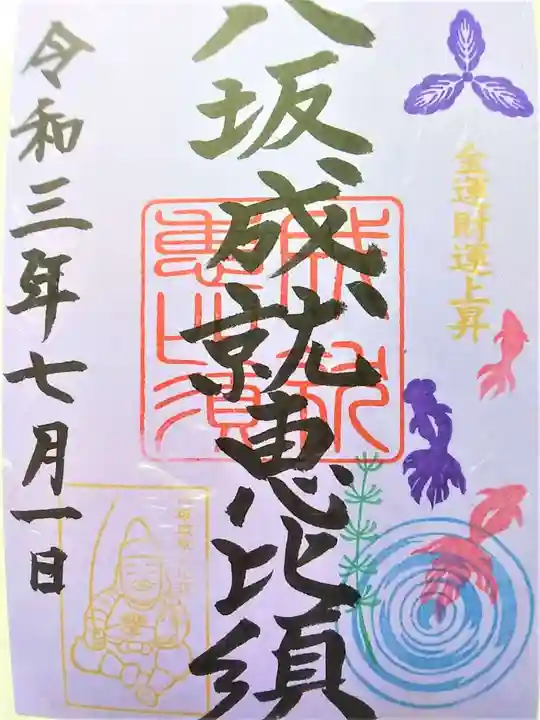 金運財運上昇
八坂成就恵比須
成就
恵比須
令和三年七月一日